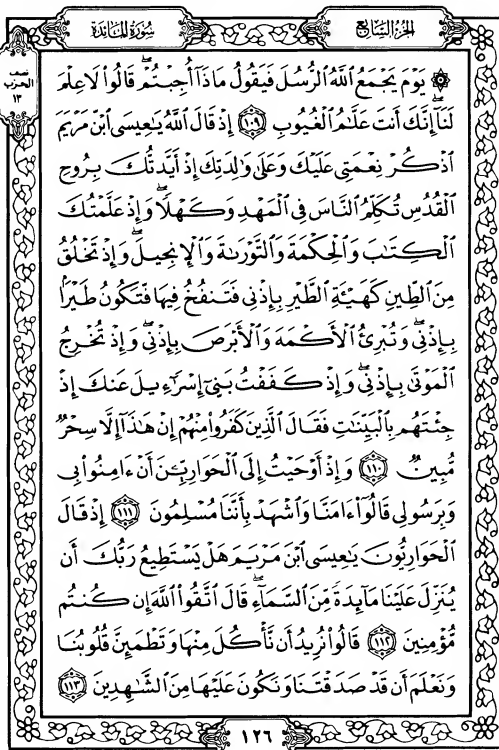 سُورَةُ المَائِدَة
الجُزْءُ السَّابِع
نصف
الحزب
١٣
۞ يَوۡمَ يَجۡمَعُ ٱللَّهُ ٱلرُّسُلَ فَيَقُولُ مَاذَآ أُجِبۡتُمۡۖ قَالُوا۟ لَا عِلۡمَ
لَنَآۖ إِنَّكَ أَنتَ عَلَّٰمُ ٱلۡغُيُوبِ ١٠٩ إِذۡ قَالَ ٱللَّهُ يَٰعِيسَى ٱبۡنَ مَرۡيَمَ
ٱذۡكُرۡ نِعۡمَتِي عَلَيۡكَ وَعَلَىٰ وَٰلِدَتِكَ إِذۡ أَيَّدتُّكَ بِرُوحِ
ٱلۡقُدُسِ تُكَلِّمُ ٱلنَّاسَ فِي ٱلۡمَهۡدِ وَكَهۡلٗاۖ وَإِذۡ عَلَّمۡتُكَ
ٱلۡكِتَٰبَ وَٱلۡحِكۡمَةَ وَٱلتَّوۡرَىٰةَ وَٱلۡإِنجِيلَۖ وَإِذۡ تَخۡلُقُ
مِنَ ٱلطِّينِ كَهَيۡـَٔةِ ٱلطَّيۡرِ بِإِذۡنِي فَتَنفُخُ فِيهَا فَتَكُونُ طَيۡرَۢا
بِإِذۡنِيۖ وَتُبۡرِئُ ٱلۡأَكۡمَهَ وَٱلۡأَبۡرَصَ بِإِذۡنِيۖ وَإِذۡ تُخۡرِجُ
ٱلۡمَوۡتَىٰ بِإِذۡنِيۖ وَإِذۡ كَفَفۡتُ بَنِيٓ إِسۡرَٰٓءِيلَ عَنكَ إِذۡ
جِئۡتَهُم بِٱلۡبَيِّنَٰتِ فَقَالَ ٱلَّذِينَ كَفَرُوا۟ مِنۡهُمۡ إِنۡ هَٰذَآ إِلَّا سِحۡرٞ
مُّبِينٞ ١١٠ وَإِذۡ أَوۡحَيۡتُ إِلَى ٱلۡحَوَارِيِّـۧنَ أَنۡ ءَامِنُوا۟ بِي
وَبِرَسُولِي قَالُوٓا۟ ءَامَنَّا وَٱشۡهَدۡ بِأَنَّنَا مُسۡلِمُونَ ١١١ إِذۡ قَالَ
ٱلۡحَوَارِيُّونَ يَٰعِيسَى ٱبۡنَ مَرۡيَمَ هَلۡ يَسۡتَطِيعُ رَبُّكَ أَن
يُنَزِّلَ عَلَيۡنَا مَآئِدَةٗ مِّنَ ٱلسَّمَآءِۖ قَالَ ٱتَّقُوا۟ ٱللَّهَ إِن كُنتُم
مُّؤۡمِنِينَ ١١٢ قَالُوا۟ نُرِيدُ أَن نَّأۡكُلَ مِنۡهَا وَتَطۡمَئِنَّ قُلُوبُنَا
وَنَعۡلَمَ أَن قَدۡ صَدَقۡتَنَا وَنَكُونَ عَلَيۡهَا مِنَ ٱلشَّٰهِدِينَ ١١٣
١٢٦